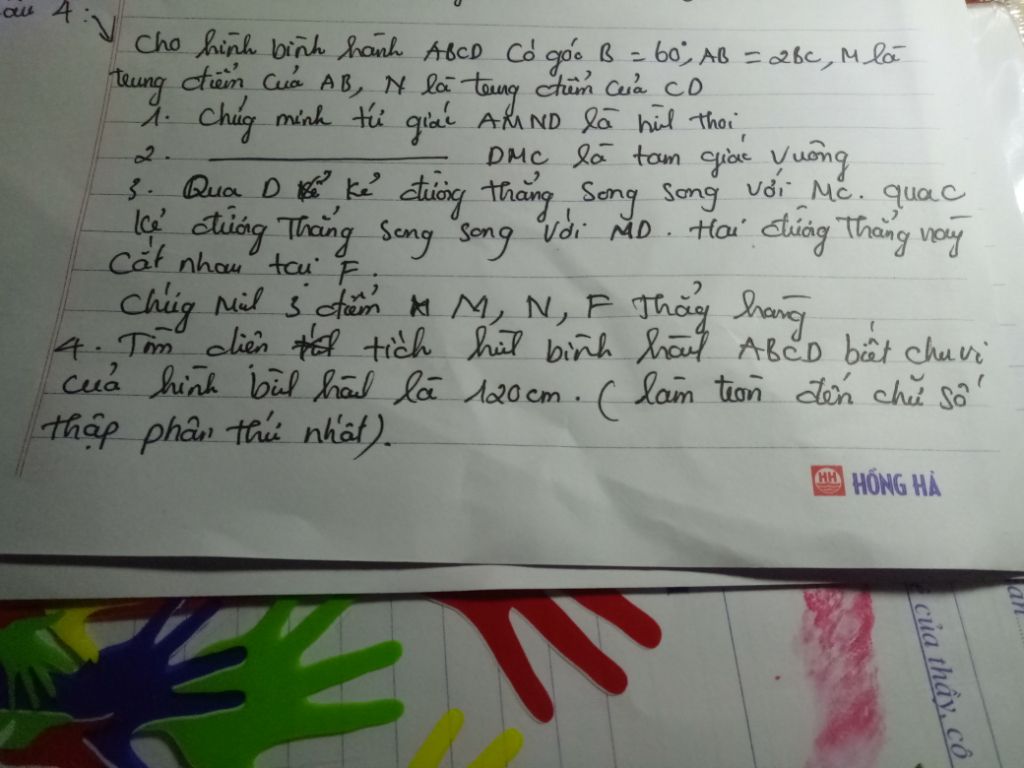 4:
Cho hình bình hành ABCD có góc B = 60°, AB = 2BC, M là
trung điểm của AB, N là trung điểm của CD
1. Chứg minh tứ giác AMND là hìl thoi
2. ——— DMC là tam giác vuông
3. Qua D kẻ đường thẳng song song với MC. qua C
kẻ đường thẳng song song với MD. Hai đường thẳng này
cắt nhau tại F.
Chứg mil 3 điểm M, N, F thẳg hàng
4. Tìm diên tích hìl bình hàul ABCD biết chu vi
của hình bìl hàl là 120cm. ( làm tròn đến chữ số
thập phân thứ nhất).
HH HỒNG HÀ
của thầy, cô